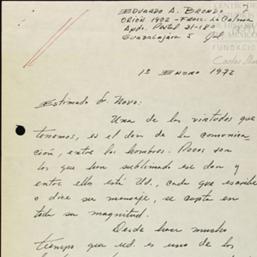 EDUARDO A. BRONDO
ORION 1972 - FRACC. La Calma
Apdo. Postal 31-180
Guadalajara 5 Jal
FUNDACIÓN
1º ENERO 1972
Estimado Sr. Novo:
Una de las virtudes que
tenemos, es el don de la comunica-
ción, entre los hombres. Pocos son
los que han sublimado ese don y
entre ellos está Ud., cada que escribe
o dice su mensaje, se capta en
toda su magnitud.
Desde hace mucho
tiempo que ud. es uno de los